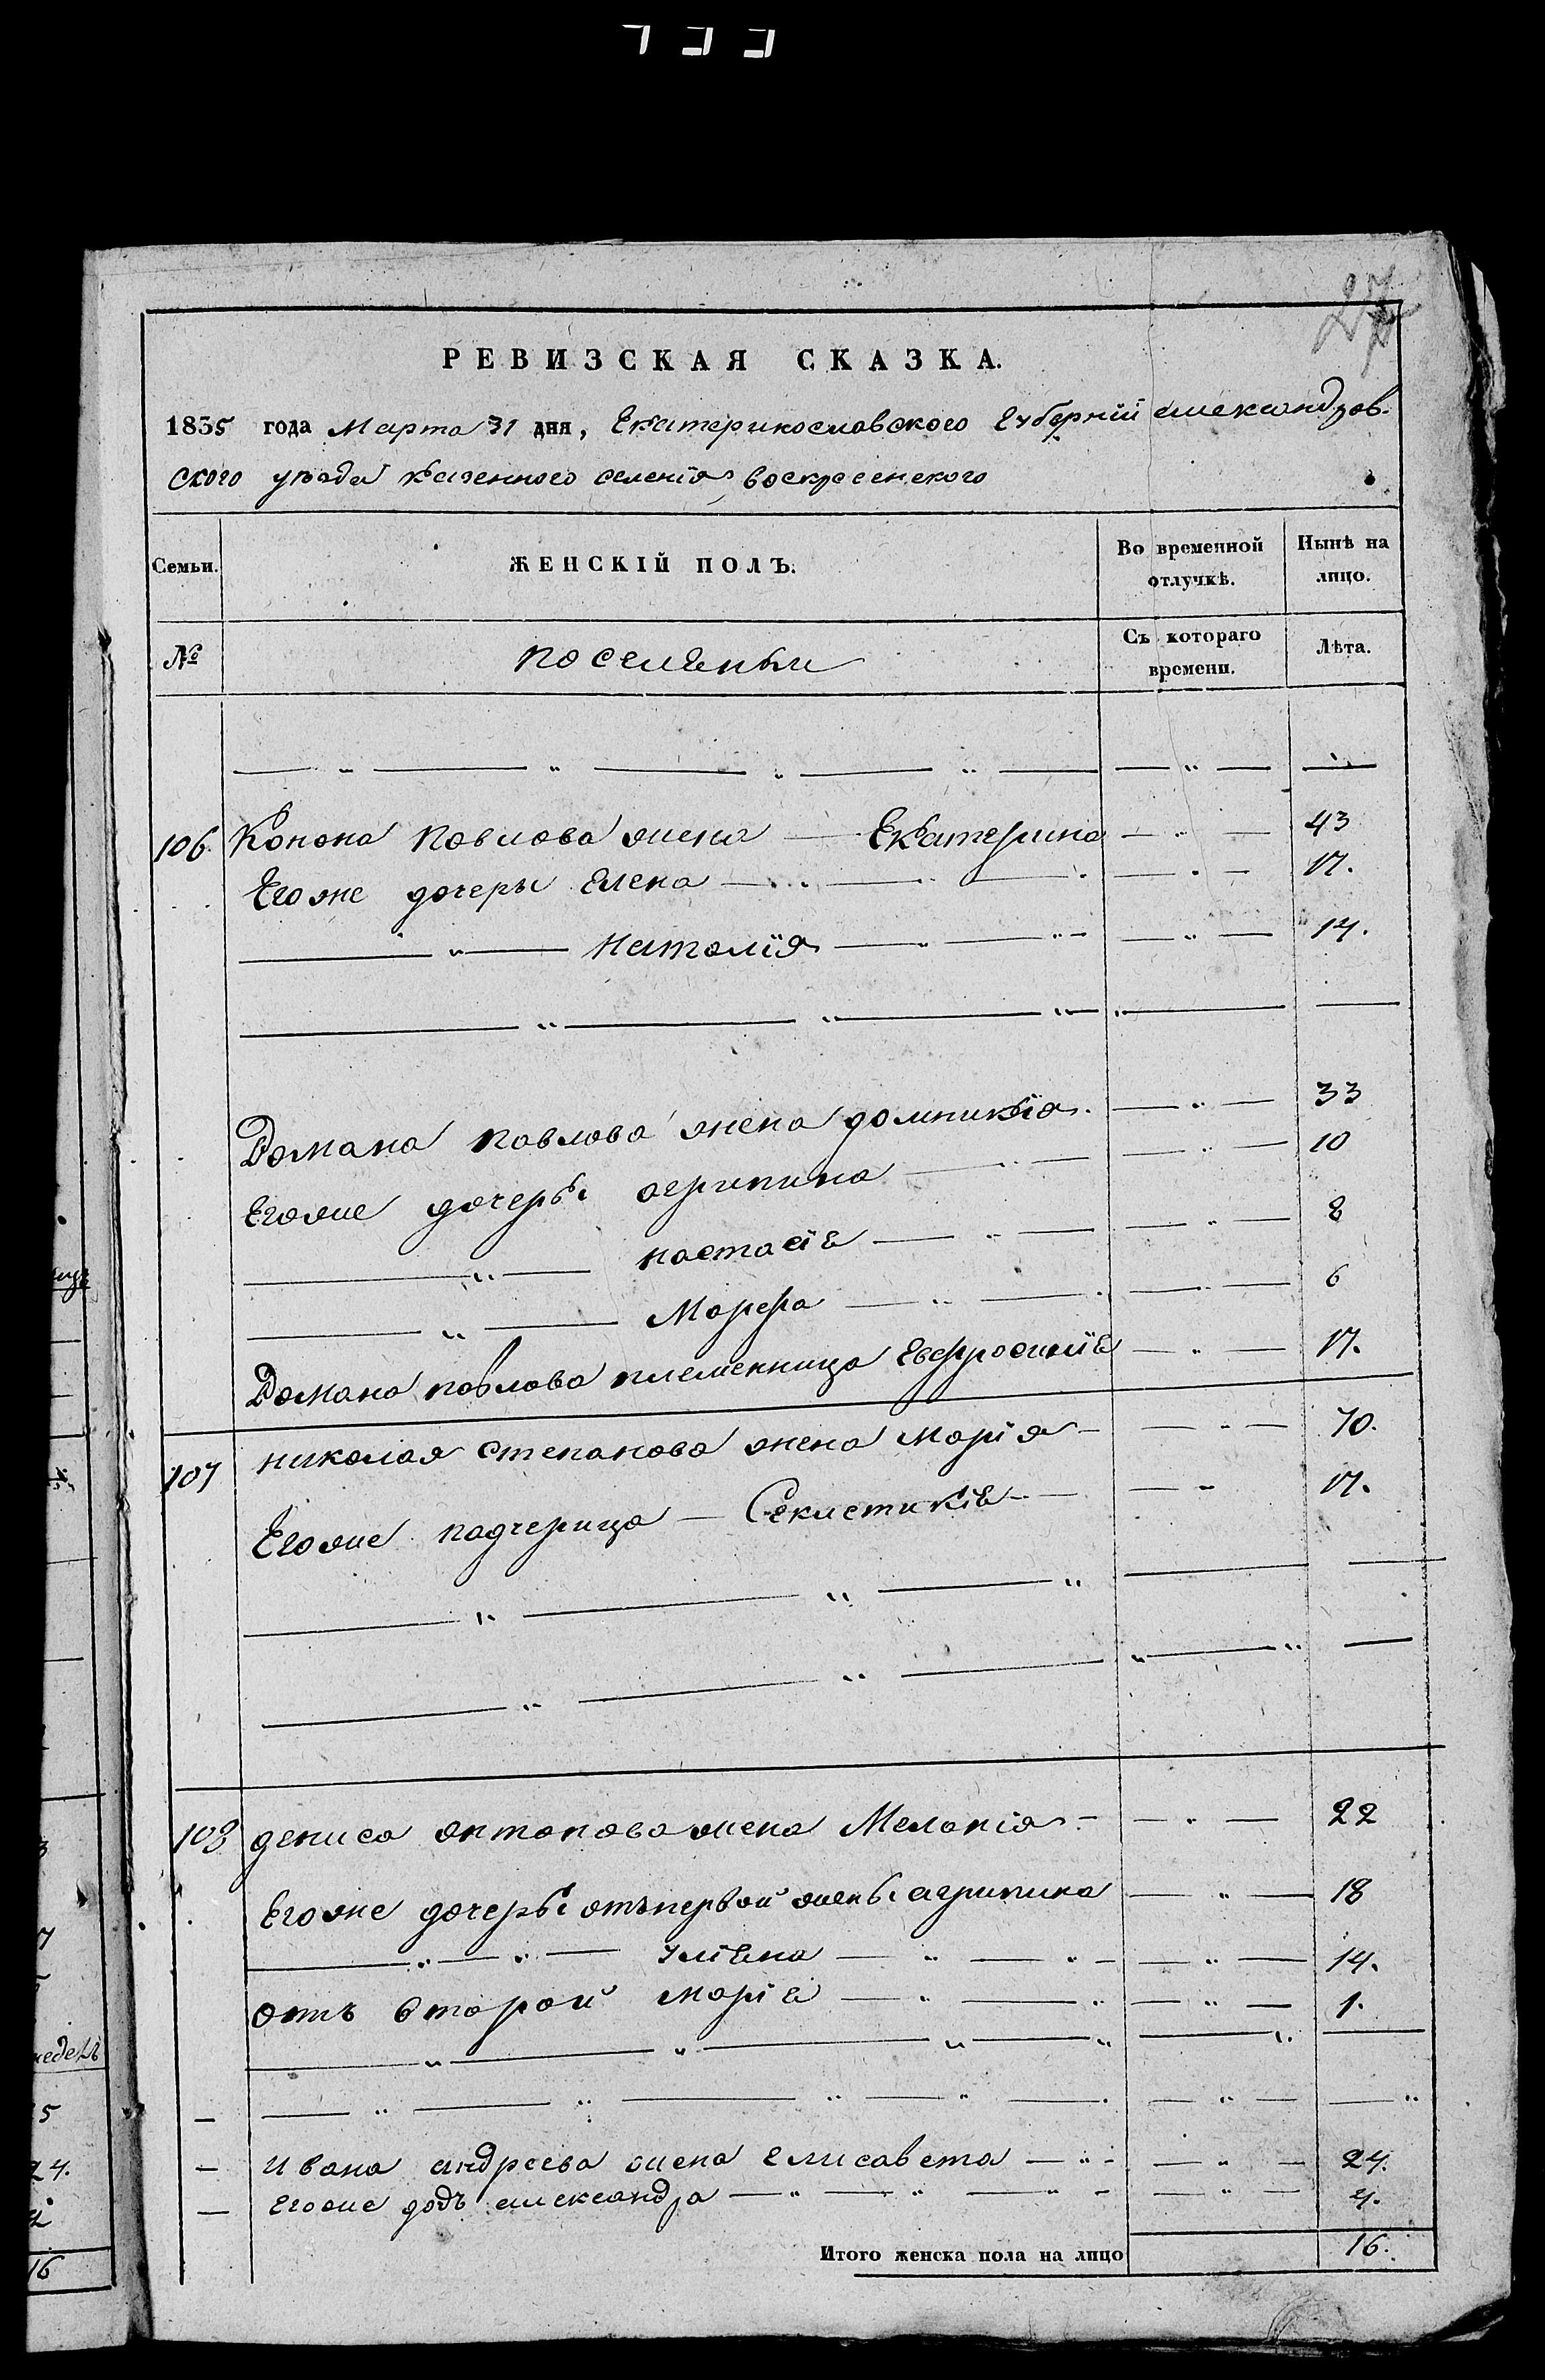 27
РЕВИЗСКАЯ СКАЗКА.
1835 года Марта 31 дня, Екатеринославского Губерніи александров-
ского уѣзда казенного селенія воскресенского
Семьи. ЖЕНСКІЙ ПОЛЪ. Во временной отлучкѣ. Нынѣ на лицо.
№ поселяны Съ котораго времени. Лѣта.
106 Конона Павлова жена — Екатерина — " — 43
Его же дочеры Елена — " — 17.
— " — Наталія — " — 14.
Романа Павлова жена домникія — " — 33
Его же дочеры агрипина — " — 10
— " — настасіе — " — 8
— " — Марфа — " — 6
Романа павлова племенница Евфросиніе — " — 17.
107 николая степанова жена Марія — " — 70.
Его же падчерица — Секлетикіе — " 17.
108 дениса антонова жена Меланія — " — 22
Его же дочеры отъ первой жены агрипина — " — 18
— " — " — улиена — " — 14.
отъ второй маріе — " — 1.
— ивана андреева жена елисавета — " — 24.
— Его же дочъ александра — " — 4.
Итого женска пола на лицо 16.
недель
5
24.
16